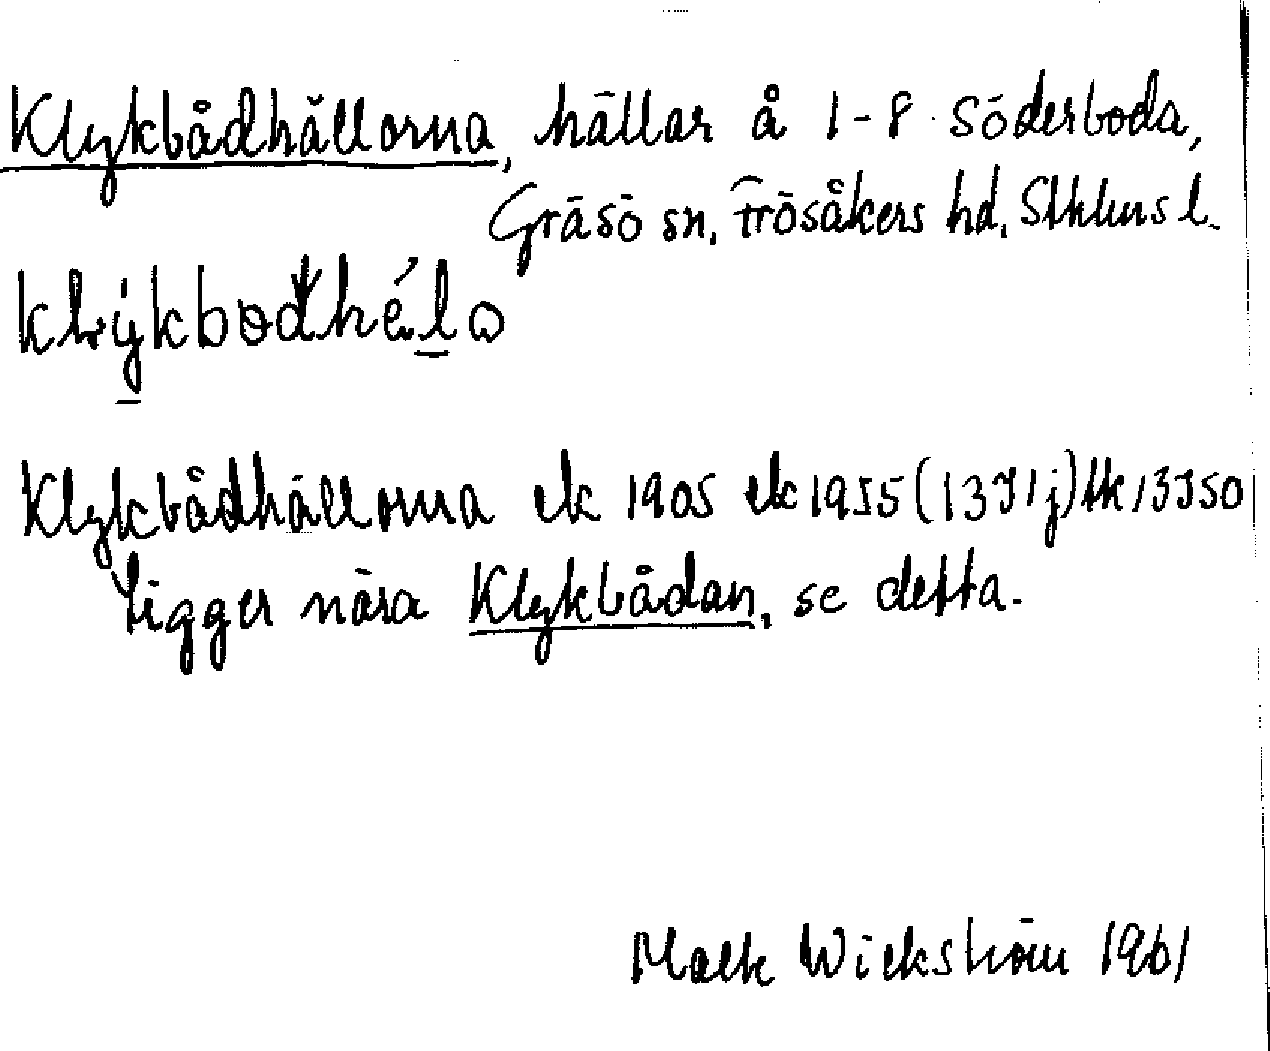 Klykbådhällorna, hällar å 1-8 Söderboda,
Gräsö sn, Frösåkers hd, Sthlms l.
Klykbådhällorna ek 1905 ek 1955 (13J1j) tk 13J SO
Ligger nära Klykbådan, se detta.
Wickström 1961